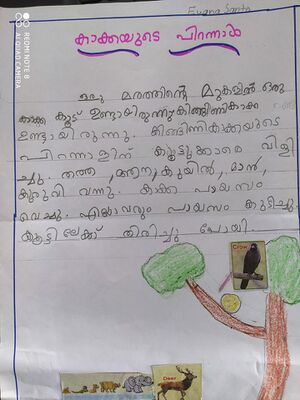 Evana Santo
കാക്കയുടെ പിറന്നാൾ
ഒരു മരത്തിന്റെ മുകളിൽ ഒരു
കാക്ക കൂട് ഉണ്ടായിരുന്നു കിങ്ങിണികാക്ക
ഉണ്ടായിരുന്നു. കിങ്ങിണികാക്കയുടെ
പിറന്നാളിന് കൂട്ടുക്കാരെ വിളി
ച്ചു. തത്ത, ആന, കുയിൽ, മാൻ,
കുരുവി വന്നു. കാക്ക പായസം
വെച്ചു. എല്ലാവരും പായസം കുടിച്ചു
കൂട്ടിലേക്ക് തിരിച്ചു പോയി.
Crow
Deer
REDMI NOTE 8
AI QUAD CAMERA